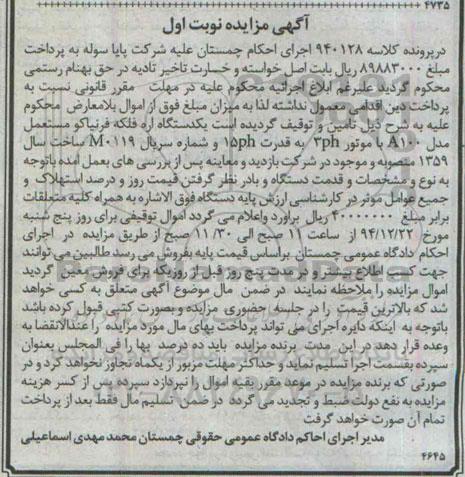 ۴۷۳۵
آگهی مزایده نوبت اول
درپرونده کلاسه ۹۴۰۱۲۸ اجرای احکام چمستان علیه شرکت پایا سوله به پرداخت
مبلغ ۸۹۸۸۳۰۰۰ ریال بابت اصل خواسته و خسارت تاخیر تادیه در حق بهنام رستمی
محکوم گردید علیرغم ابلاغ اجرائیه محکوم علیه در مهلت مقرر قانونی نسبت به
پرداخت دین اقدامی معمول نداشته لذا به میزان مبلغ فوق از اموال بلامعارض محکوم
علیه به شرح ذیل تامین و توقیف گردیده است یکدستگاه اره فلکه فرنیاکو مستعمل
مدل A۱۰۰ با موتور ۳ph به قدرت ۱۵ph و شماره سریال M۰۱۱۹ ساخت سال
۱۳۵۹ منصوبه و موجود در شرکت بازدید و معاینه پس از بررسی های بعمل آمده باتوجه
به نوع و مشخصات و قدمت دستگاه و بادر نظر گرفتن قیمت روز و درصد استهلاک و
جمیع عوامل موثر در کارشناسی ارزش پایه دستگاه فوق الاشاره به همراه کلیه متعلقات
برابر مبلغ ۴۰۰۰۰۰۰۰ ریال براورد واعلام می گردد اموال توقیفی برای روز پنج شنبه
مورخ ۹۴/۱۲/۲۲ از ساعت ۱۱ صبح الی ۱۱/۳۰ صبح از طریق مزایده در اجرای
احکام دادگاه عمومی چمستان براساس قیمت پایه بفروش می رسد طالبین می توانند
جهت کسب اطلاع بیشتر و در مدت پنج روز قبل از روزیکه برای فروش معین گردید
اموال مزایده را ملاحظه نمایند در ضمن مال موضوع آگهی متعلق به کسی خواهد
شد که بالاترین قیمت را در جلسه حضوری مزایده و بصورت کتبی قبول کرده باشد
باتوجه به اینکه دایره اجرای می تواند پرداخت بهای مال مورد مزایده را عندالاقتضا به
وعده قرار دهد در این مدت برنده مزایده باید ده درصد بها را فی المجلس بعنوان
سپرده بقسمت اجرا تسلیم نماید و حداکثر مهلت مزبور از یکماه تجاوز نخواهد کرد و در
صورتی که برنده مزایده در موعد مقرر بقیه اموال را نپردازد سپرده پس از کسر هزینه
مزایده به نفع دولت ضبط و تجدید می گردد در ضمن تسلیم مال فقط بعد از پرداخت
تمام آن صورت خواهد گرفت
مدیر اجرای احاکم دادگاه عمومی حقوقی چمستان محمد مهدی اسماعیلی
۴۶۴۵